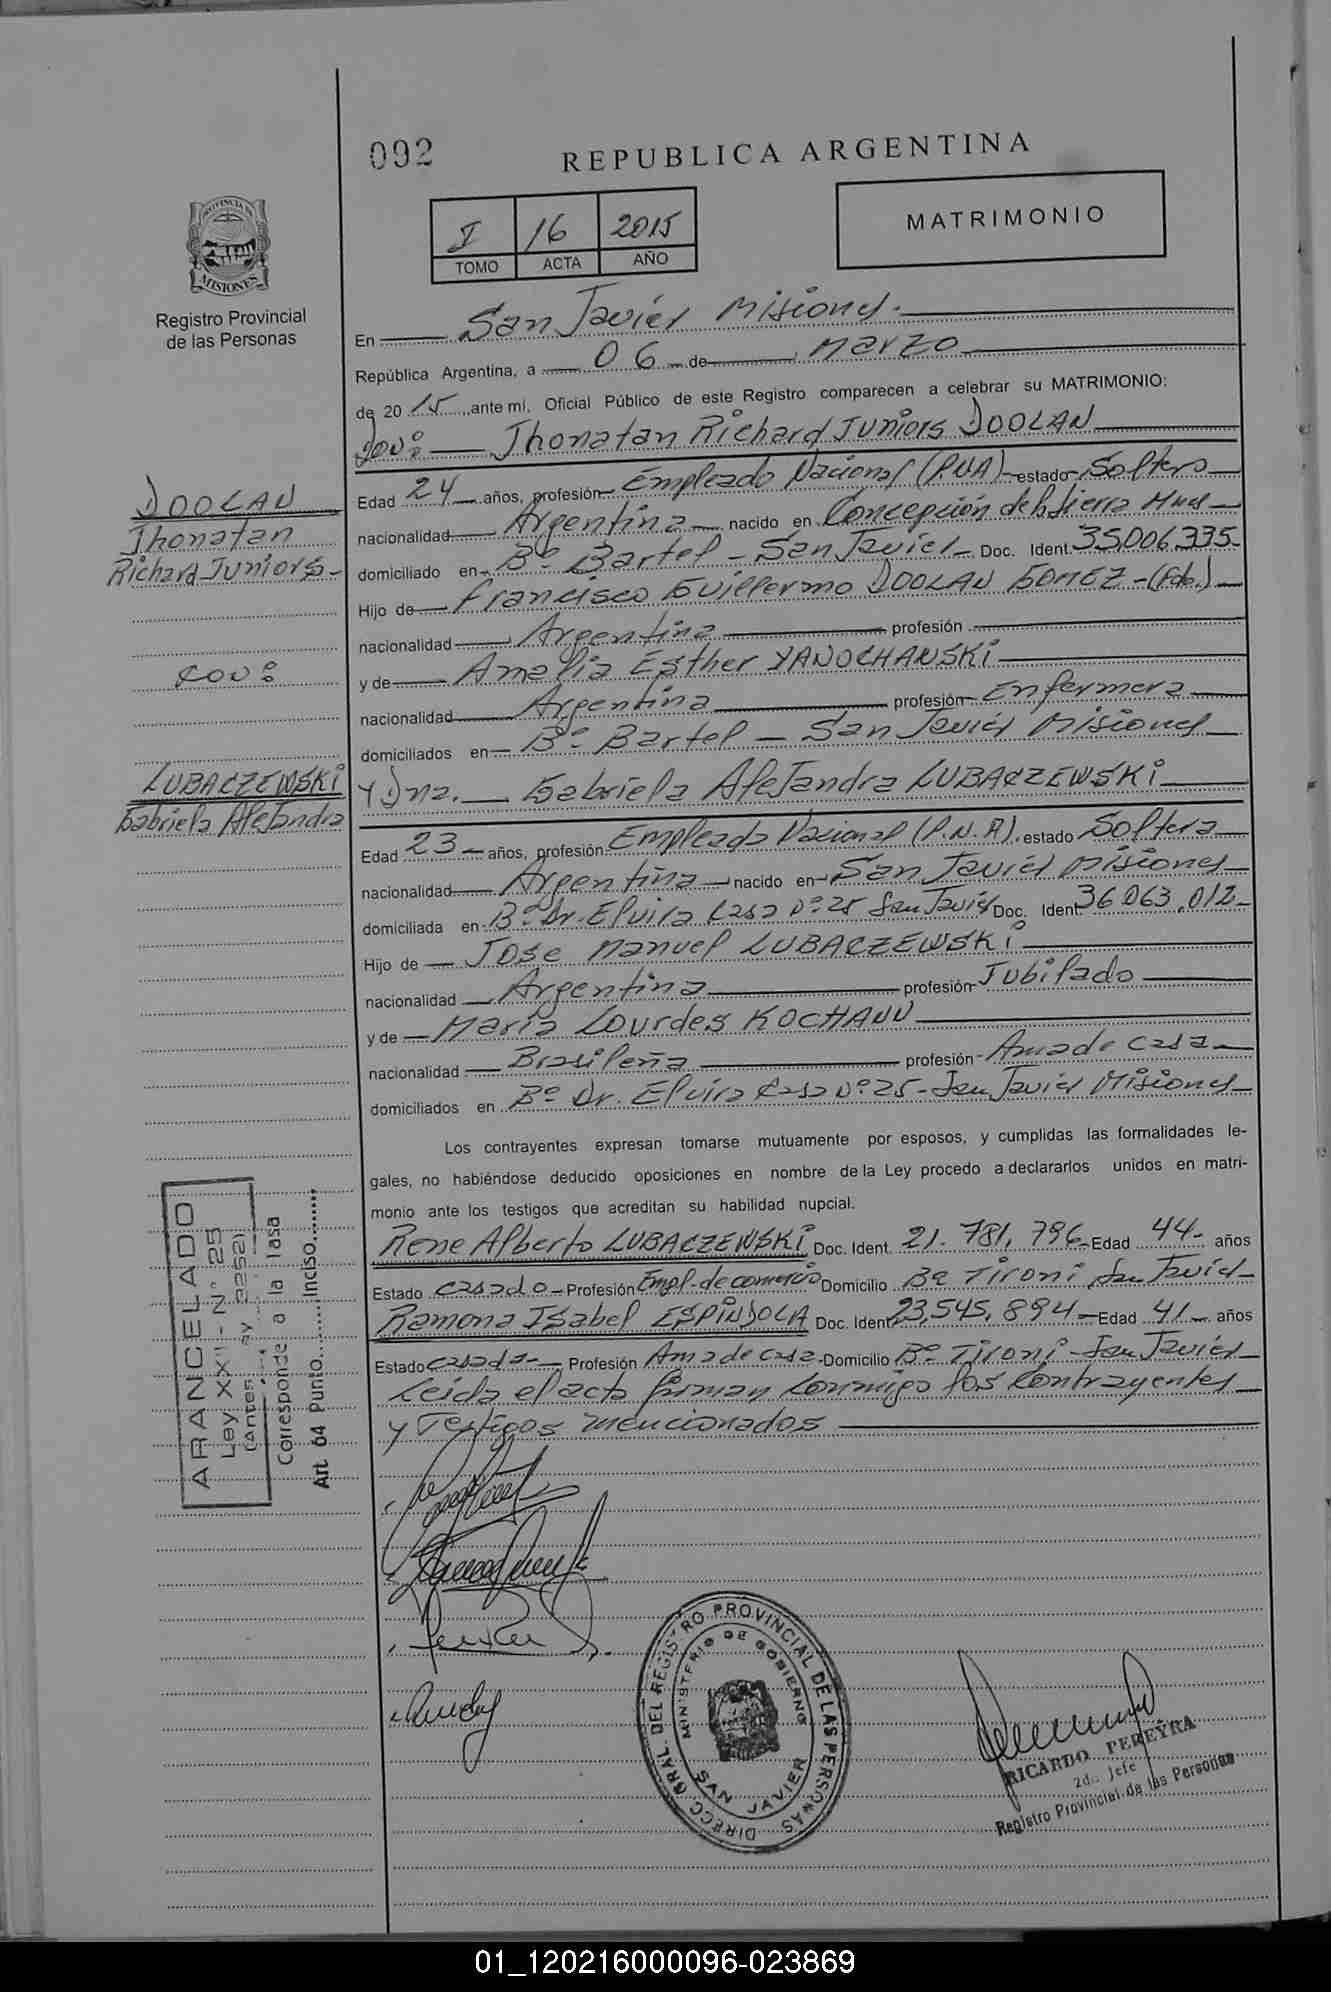 092
REPUBLICA ARGENTINA
I 16 2015
TOMO ACTA AÑO
MATRIMONIO
PROVINCIA DE
MISIONES
Registro Provincial
de las Personas
En San Javier Misiones.
República Argentina, a 06 de Marzo
de 20 15 ante mi, Oficial Público de este Registro comparecen a celebrar su MATRIMONIO:
Jhonatan Richard Juniors DOOLAN
DOOLAN
Jhonatan
Richard Juniors
con:
LUBACZEWSKi
Gabriela Alejandra
Edad 24 años, profesión Empleado Nacional (P.N.A) estado Soltero
nacionalidad Argentina nacido en Concepción de la Sierra Mnes
domiciliado en Bº Bartel - San Javier Doc. Ident. 35006.335
Hijo de Francisco Guillermo DOOLAN GOMEZ - (Fdo.)
nacionalidad Argentina profesión
y de Amalia Esther YANOCHANSKi
nacionalidad Argentina profesión Enfermera
domiciliados en Bº Bartel - San Javier Misiones
Y Dña. Gabriela Alejandra LUBACZEWSKi
Edad 23 años, profesión Empleada Nacional (P.N.A), estado Soltera
nacionalidad Argentina nacido en San Javier Misiones
domiciliada en Bº Dr. Elvira Casa Nº 25 San Javier Doc. Ident. 36.063.012
Hijo de Jose Manuel LUBACZEWSKi
nacionalidad Argentina profesión Jubilado
y de Maria Lourdes KOCHANN
nacionalidad Brasileña profesión Ama de casa
domiciliados en Bº Dr. Elvira Casa Nº 25 - San Javier Misiones
Los contrayentes expresan tomarse mutuamente por esposos, y cumplidas las formalidades le-
gales, no habiéndose deducido oposiciones en nombre de la Ley procedo a declararlos unidos en matri-
monio ante los testigos que acreditan su habilidad nupcial.
Rene Alberto LUBACZEWSKi Doc. Ident. 21.781.796 Edad 44 años
Estado casado Profesión Empl. de comercio Domicilio Bº Tironi San Javier
Ramona Isabel ESPiNDOLA Doc. Ident. 23.545.894 Edad 41 años
Estado casada Profesión Ama de casa Domicilio Bº Tironi - San Javier
Leida el acta firman conmigo los contrayentes
y testigos mencionados
ARANCELADO
Ley XXII - Nº 25
(Antes Ley 2252)
Corresponde a la Tasa
Art 64 Punto Inciso
DIRECC GRAL. DEL REGISTRO PROVINCIAL DE LAS PERSONAS
MINISTERIO DE GOBIERNO
SAN JAVIER
RICARDO PEREYRA
2do. Jefe
Registro Provincial de las Personas
01_120216000096-023869